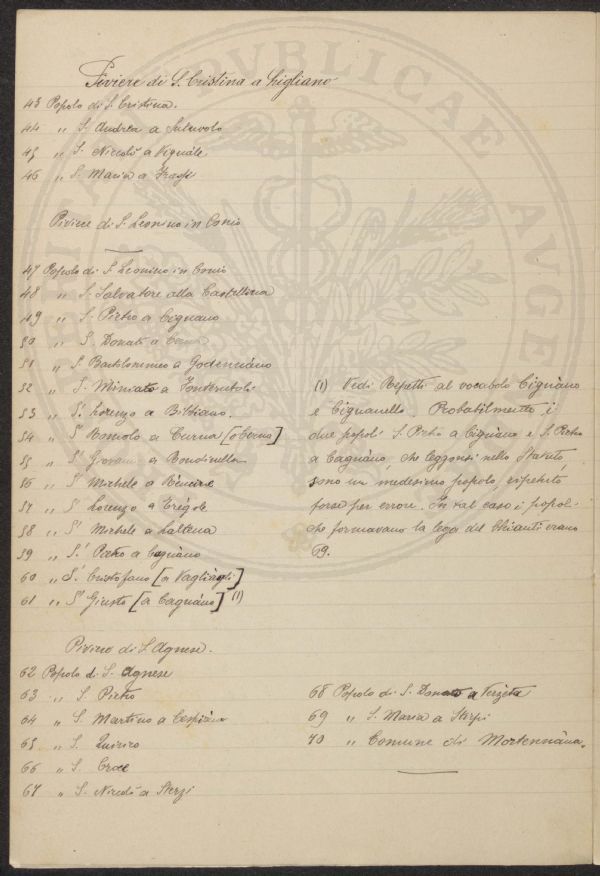 Piviere di S. Cristina a Ligliano
43 Popolo di S. Cristina.
44 „ S. Andrea a
45 „ S. Niccolò a Vignale
46 „ S. Maria a
Piviere di S. Leonino in Conio
47 Popolo di S. Leonino in Conio
48 „ S. Salvatore alla Castellina
49 „ S. Pietro a Cignano
50 „ S. Donato a
51 „ S. Bartolommeo a Godenciano
52 „ S. Miniato a Fonterutoli
53 „ S. Lorenzo a Bibbiano.
54 „ S. Romolo a
55 „ S. Giovanni a Rondinella
56 „ S. Michele a
57 „ S. Lorenzo a Grégole
58 „ S. Michele a
59 „ S. Pietro a Cagnàno
60 „ S. Cristofano [a Vagliagli]
61 „ S. Giusto [a Cagnàno] (1)
(1) Vedi Repetti al vocabolo Cignàno
e Cignanello. Probabilmente i
due popoli S. Pietro a Cignàno e S. Pietro
a Cagnàno, che leggonsi nello Statuto,
sono un medesimo popolo, ripetuto
forse per errore. In tal caso i popoli
che formavano la lega del Chianti erano
69.
Piviere di S. Agnese.
62 Popolo di S. Agnese
63 „ S. Pietro
64 „ S. Martino a Cispiàno
65 „ S. Quirico
66 „ S. Croce
67 „ S. Niccolò a Sterzi
68 Popolo di S. Donato a
69 „ S. Maria a
70 „ Comune di Mortennàna.
REI PUBLICAE AUGE